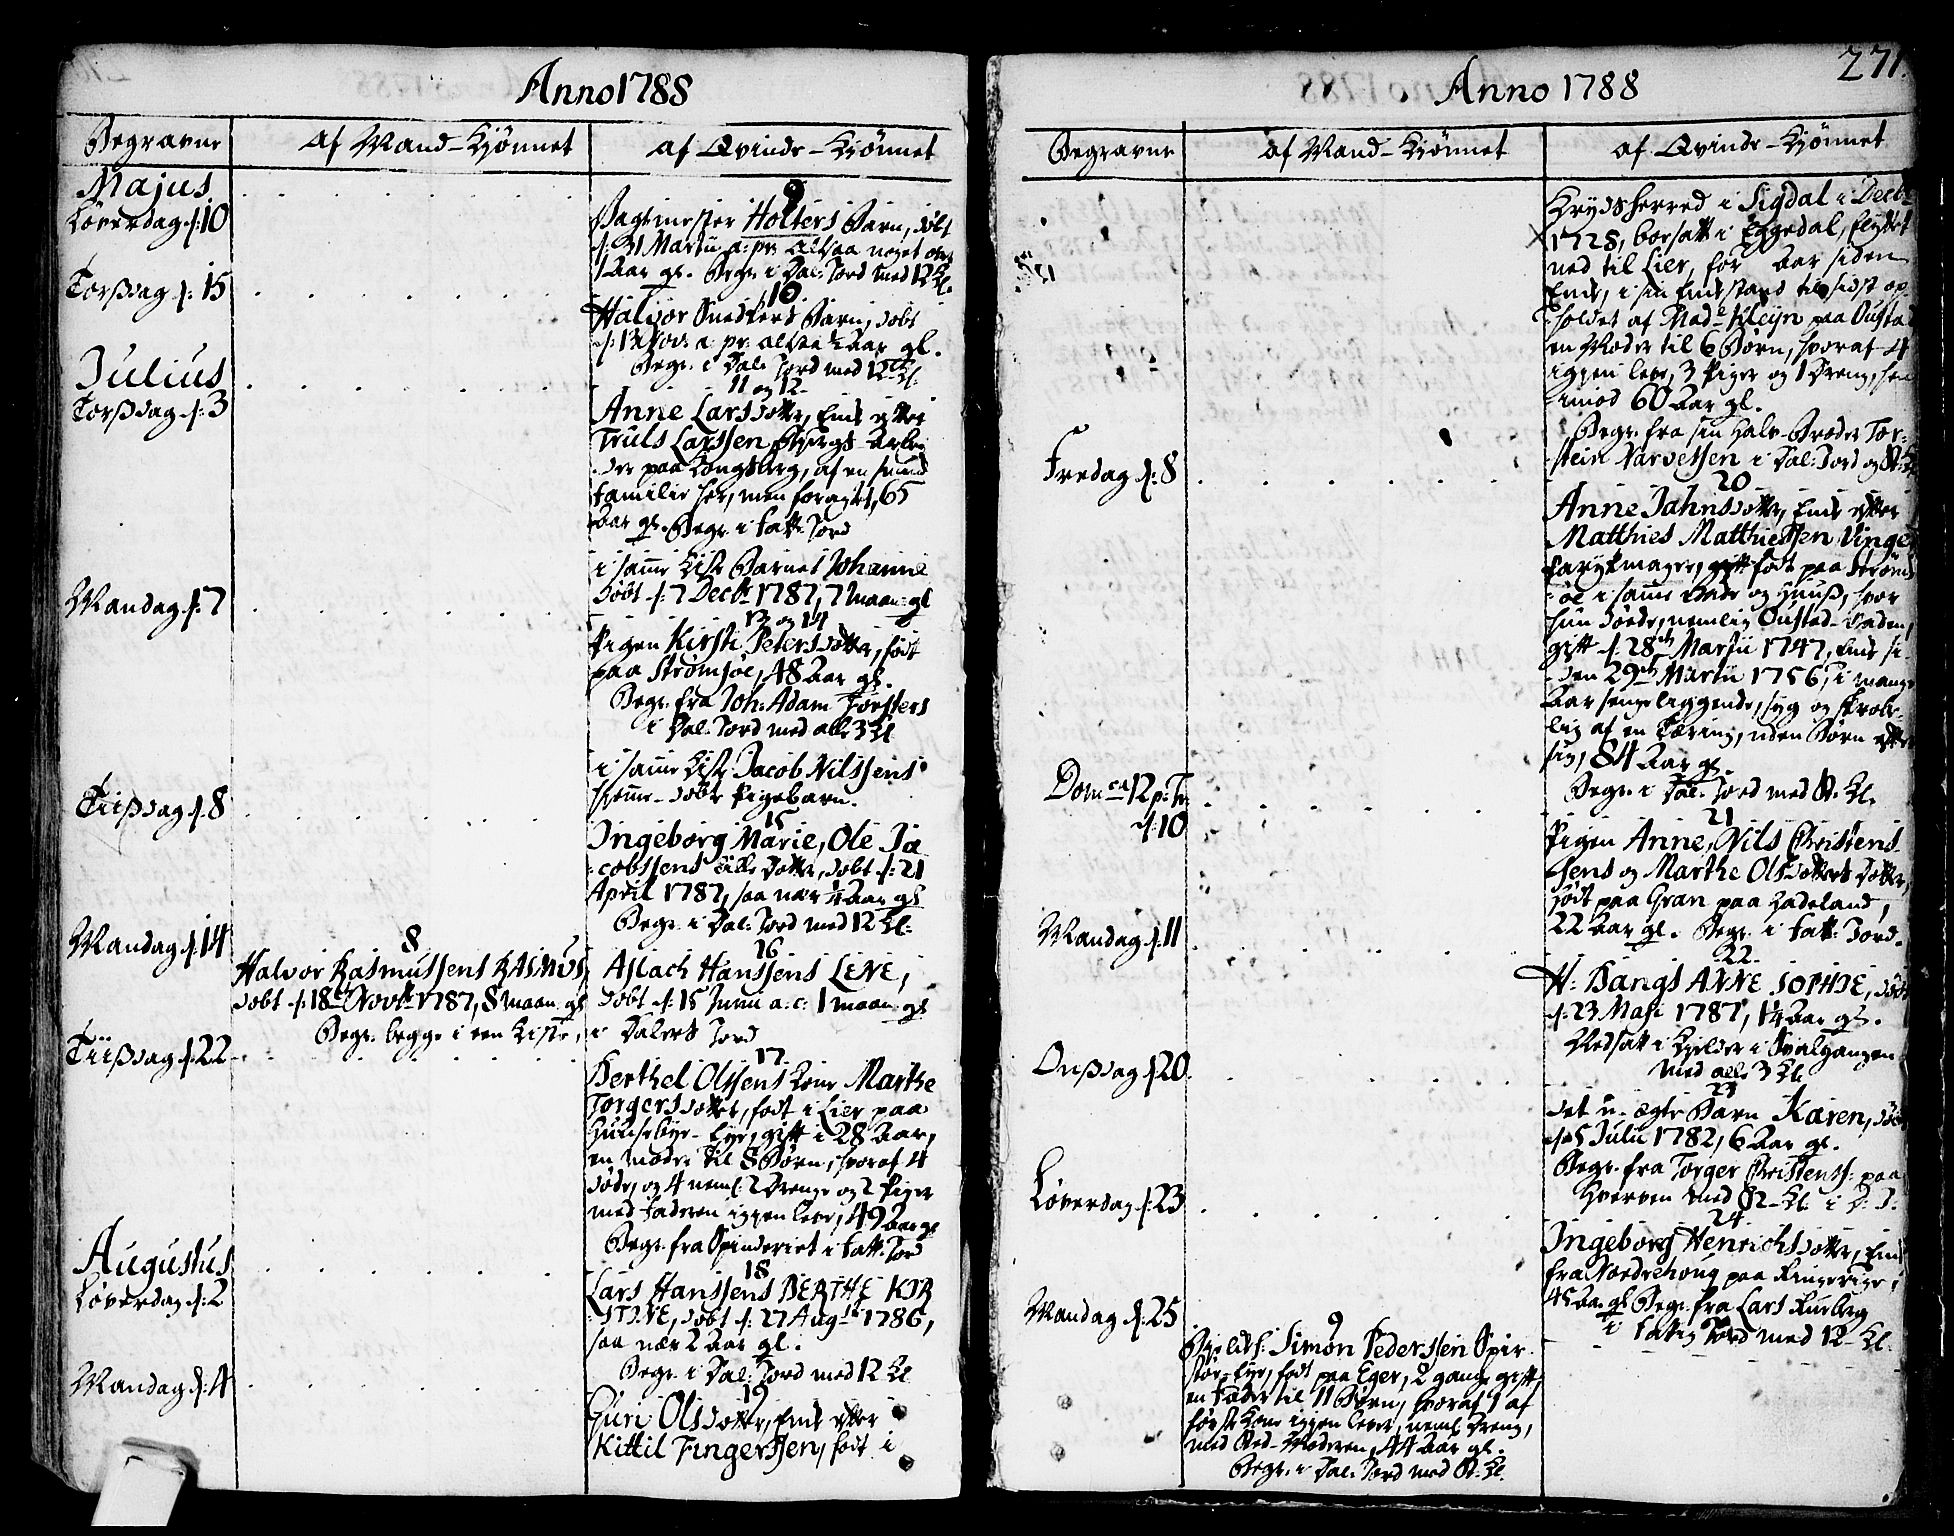 Anno 1788
Begravne
af Mand-Kjønnet
af Qvinde-Kjønnet
Majus
Løverdag d: 10
9
Vagtmester Holters Barn, døbt
d: 31 Martii a: pr: altsaa noget over
1 Aar gl. Begr. i Dal: Jord med 12 Kl.
Torsdag d: 15
10
Halvor Snedkers Barn, døbt
a: pr: altsaa ½ Aar gl.
Begr. i Dal: Jord med 12 Kl.
Julius
Torsdag d: 3
11 og 12
Anne Larsdotter, Enke efter
Truls Larssen, Bergs-Arbei
der paa Kongsberg, af en
familie her, men foragtet, 65
Aar gl. Begr. i Fatt: Jord
i samme Kiste Barnet Johanne
døbt d: 7 Decbr 1787, 7 maan: gl
Mandag d: 7
13 og 14
Pigen Kirsti Petersdotter, født
paa Strømsøe, 48 Aar gl.
Begr. fra Joh: Adam Førsters
i Dal: Jord med alle 3 Kl.
i samme Kiste Jacob Nilssens
hjemme-døbte Pigebarn.
Tiisdag d: 8
15
Ingeborg Marie, Ole Ja
cobssens Dotter, døbt d: 21
April 1787, saa nær ¼ Aar gl
Begr. i Dal: Jord med 12 Kl:
Mandag d: 14
8
Halvor Rasmussens RASMUS,
døbt d: 18 Novbr 1787, 8 maan: gl
16
Aslach Hanssens LENE,
døbt d: 15 Junii a: c: 1 maan: gl
Begr. begge i een Kiste, i Dalers Jord
Tiisdag d: 22
17
Berthel Olssens Kone Marthe
Torgersdotter, født i Lier paa
Huuseby-Eye, gift i 28 Aar,
en Moder til 8 Børn, hvoraf 4
døde, og 4 neml: 2 Drenge og 2 Piger
med Faderen igjen lever, 49 Aar gl
Begr. fra Spinderiet i Fatt: Jord
Augustus
Løverdag d: 2
18
Lars Hanssens BERTHE KIR
STINE, døbt d: 27 Aug 1786,
saa nær 2 Aar gl.
Begr. i Dal: Jord med 12 Kl
Mandag d: 4
19
Guri Olsdotter, Enke efter
Kittil Fingerssen, født i
271.
Anno 1788
Begravne
af Mand-Kjønnet
af Qvinde-Kjønnet
Krydsherred i Sigdal i Decbr
1728, borsatt i Eggedal, flyttet
ned til Lier, for Aar siden
Enke, i sin Enkestand til sidst op
holdet af Mad Kleyn paa Oustad
en Moder til 6 Børn, hvoraf 4
igjen lever, 3 Piger og 1 Dreng, hen
imod 60 Aar gl.
Begr. fra sin Halv-Broder Tor
stein Narvessen i Dal: Jord og
Fredag d: 8
20
Anne Jahnsdotter, Enke efter
Matthies Matthiessen Vinge
Parykmager, født paa Strøms
øe i samme Gade og Huus, hvor
hun døde, nemlig Oustad-Gaden,
gift d: 28 Martii 1747, Enke si
den 29 Martii 1756, i mange
Aar sengeliggende, syg og skrøbe
lig af en Tæring, uden Børn efter
sig, 84 Aar gl.
Begr. i Dal: Jord med St. Kl.
Dom 12 p: Tr:
d: 10
21
Pigen Anne, Nils Christens
sens og Marthe Olsdotters Dotter,
født paa Gran paa Hadeland,
22 Aar gl. Begr. i Fatt: Jord.
Mandag d: 11
22.
H: Bangs ANNE SOPHIE, døbt
d: 23 Maji 1787, 1¼ Aar gl.
Nedsatt i Kjelder i Svalgangen
med alle 3 Kl.
Onsdag d: 20
23
det u-ægte Barn Karen, døbt
d: 5 Julii 1782, 6 Aar gl.
Begr. fra Torger Christenss: paa
Hverven med St-Kl: i D: J.
Løverdag d: 23
24
Ingeborg Henrichsdotter, Enke
fra Nordrehoug paa Ringerige,
45 Aar gl Begr. fra Lars Rurberg
i Fattig Jord med 12 Kl.
Mandag d: 25
9
Simon Pederssen Spir
støe-Eye, født paa Eger, 2 gange gift
en Fader til 11 Børn, hvoraf 1 af
første Kone igjen lever, neml: Dreng,
med Sted-Moderen, 44 Aar gl.
Begr. i Dal: Jord med St. Kl.